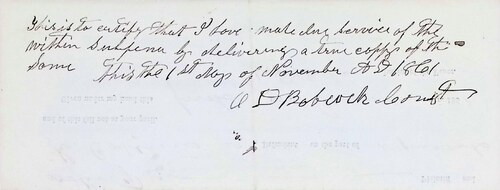 This is to certify that I have made due service of the
within Subpena by delivering a true copy of the
Same This the 1st day of November AD 1861
A D Babcock Const